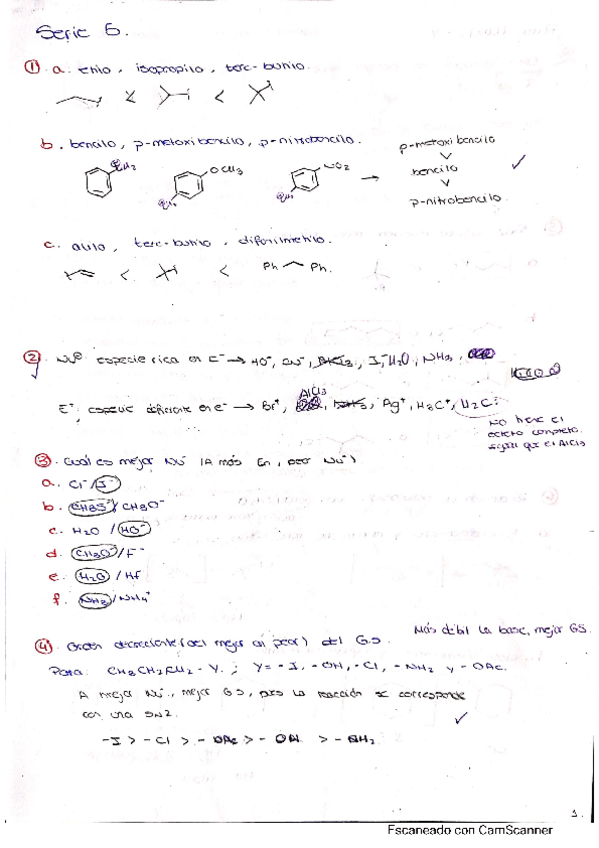 Serie 6.
① a. etilo, isopropilo, terc-butilo.
< <
b. bencilo, p-metoxibencilo, p-nitrobencilo.
CH2 OCH3 NO2 → p-metoxibencilo
CH2 CH2 bencilo ✓
p-nitrobencilo.
c. alilo, terc-butilo, difenilmetilo.
< < Ph Ph.
② especie rica en e⁻ → HO⁻, CN⁻, I⁻, H2O, NH3,
AlCl3
E⁺: especie deficiente en e⁻ → Br⁺, Ag⁺, H3C⁺, H2C:
No tiene el
octeto completo.
igual que el AlCl3
③ Cuál es mejor Nu⁻ (A más En, peor Nu⁻)
a. Cl⁻/I⁻
b. CH3S⁻/CH3O⁻
c. H2O / HO⁻
d. CH3O⁻/F⁻
e. H2O / HF
f. NH3/NH4⁺
④ Orden decreciente (del mejor al peor) del G.S. Más débil la base, mejor GS.
Para: CH3CH2CH2-Y; Y= -I, -OH, -Cl, -NH2 y -OAc.
A mejor Nu⁻, mejor GS, pues la reacción se corresponde
con una SN2. ✓
-I > -Cl > -OAc > -OH > -NH2
1.
Escaneado con CamScanner